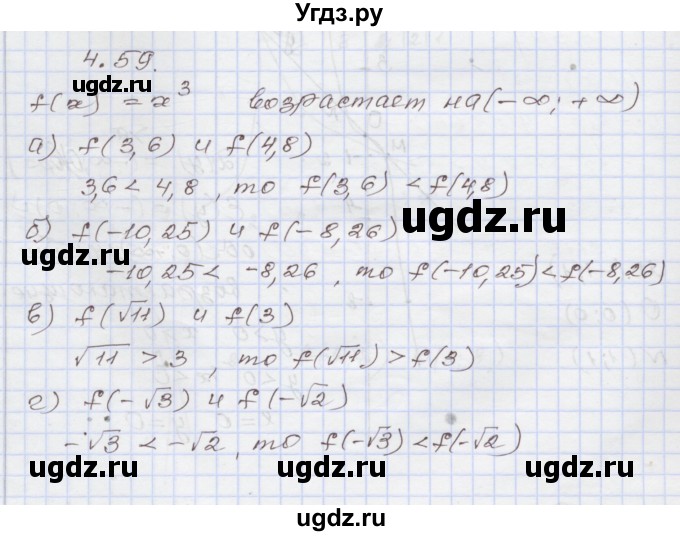 Угдз.ру
4.59.
ugdz.ru
ugdz.ru
f(x) = x³ возрастает на (-∞; +∞)
а) f(3,6) и f(4,8)
3,6 < 4,8, то f(3,6) < f(4,8)
ugdz.ru
б) f(-10,25) и f(-8,26)
ugdz.ru
-10,25 < -8,26, то f(-10,25) < f(-8,26)
в) f(√11) и f(3)
√11 > 3, то f(√11) > f(3)
г) f(-√3) и f(-√2)
-√3 < -√2, то f(-√3) < f(-√2)
ugdz.ru
ugdz.ru
ugdz.ru